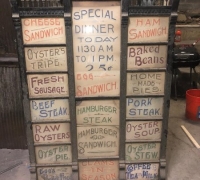 CHEESE
SANDWICH
OYSTERS
TRIPE
FRESH
SAUSAGE
BEEF
STEAK
RAW
OYSTERS
OYSTER
PIE
SPECIAL
DINNER
TODAY
11:30 AM
TO 1 PM
25¢
EGG
SANDWICH
HAMBURGER
STEAK
HAMBURGER
SANDWICH
HAM
SANDWICH
Baked
Beans
HOME
MADE
PIES
PORK
STEAK
OYSTER
SOUP
OYSTER
STEW
COFFEE